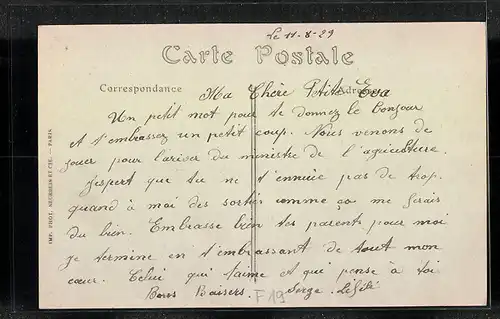 Le 11-8-29
Carte Postale
Correspondance
Adresse
Ma Chère Petite Eva
Un petit mot pour te donnez le bonjour
et t'embrassez un petit coup. Nous venons de
jouer pour l'arivér du ministre de l'agriculture.
J'espert que tu ne t'ennuie pas de trop.
quand à moi des sorties comme ça me ferais
du bien. Embrasse bien tes parents pour moi
je termine en t'embrassant de tout mon
cœur. Celui qui t'aime et qui pense à toi
Bons Baisers. Serge
F19
IMP. PHOT. NEURDEIN ET CIE. — PARIS